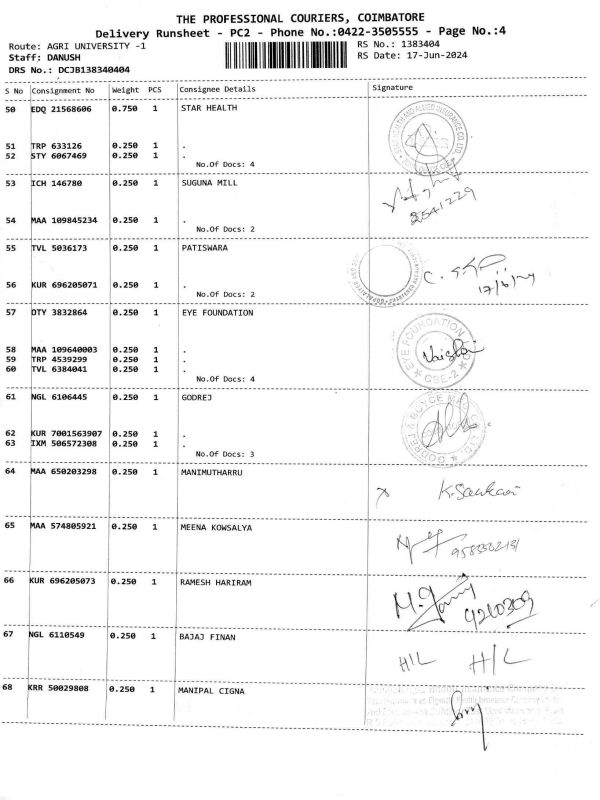 THE PROFESSIONAL COURIERS, COIMBATORE
Delivery Runsheet - PC2 - Phone No.:0422-3505555 - Page No.:4
Route: AGRI UNIVERSITY -1
RS No.: 1383404
Staff: DANUSH
RS Date: 17-Jun-2024
DRS No.: DCJB138340404
S No Consignment No Weight PCS Consignee Details Signature
50 EDQ 21568606 0.750 1 STAR HEALTH
51 TRP 633126 0.250 1 .
52 STY 6067469 0.250 1 .
No.Of Docs: 4
53 ICH 146780 0.250 1 SUGUNA MILL
54 MAA 109845234 0.250 1 .
No.Of Docs: 2
55 TVL 5036173 0.250 1 PATISWARA
17/6/24
56 KUR 696205071 0.250 1 .
No.Of Docs: 2
57 DTY 3832864 0.250 1 EYE FOUNDATION
EYE FOUNDATION
58 MAA 109640003 0.250 1 .
59 TRP 4539299 0.250 1 .
60 TVL 6384041 0.250 1 .
CBE-2
No.Of Docs: 4
61 NGL 6106445 0.250 1 GODREJ
62 KUR 7001563907 0.250 1 .
63 IXM 506572308 0.250 1 .
No.Of Docs: 3
64 MAA 650203298 0.250 1 MANIMUTHARRU
65 MAA 574805921 0.250 1 MEENA KOWSALYA
66 KUR 696205073 0.250 1 RAMESH HARIRAM
67 NGL 6110549 0.250 1 BAJAJ FINAN
H/L H/L
68 KRR 50029808 0.250 1 MANIPAL CIGNA